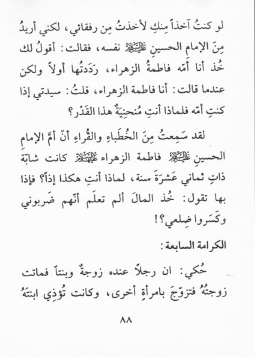 لو كنتُ آخذاً منكِ لأخذتُ مِن رفقائي، لكني أريدُ
مِنَ الإمامِ الحسينِ نفسه، فقالت: أقولُ لك
خُذ أنا أُمّه فاطمةُ الزهراء، رَدَدتُها أولاً ولكن
عندما قالت: أنا فاطمة الزهراء، قلتُ: سيدتي إذا
كنتِ أمّه فلماذا أنتِ مُنحنِيَةٌ هذا القَدْر؟
لقد سَمِعتُ مِنَ الخُطَباءِ والقُراءِ أنّ أمّ الإمامِ
الحسينِ فاطمة الزهراء كانت شابّة
ذاتِ ثماني عَشرَةَ سنة، لماذا أنتِ هكذا إذاً؟ فإذا
بها تقول: خُذ المالَ ألم تعلَم أنّهم ضَربوني
وكَسَروا ضِلعي؟!
الكرامة السابعة:
حُكي: ان رجلاً عنده زوجةٌ وبنتاً فماتت
زوجتُهُ فتزوّجَ بامرأةٍ أخرى، وكانت تُؤذي ابنتَهُ
٨٨